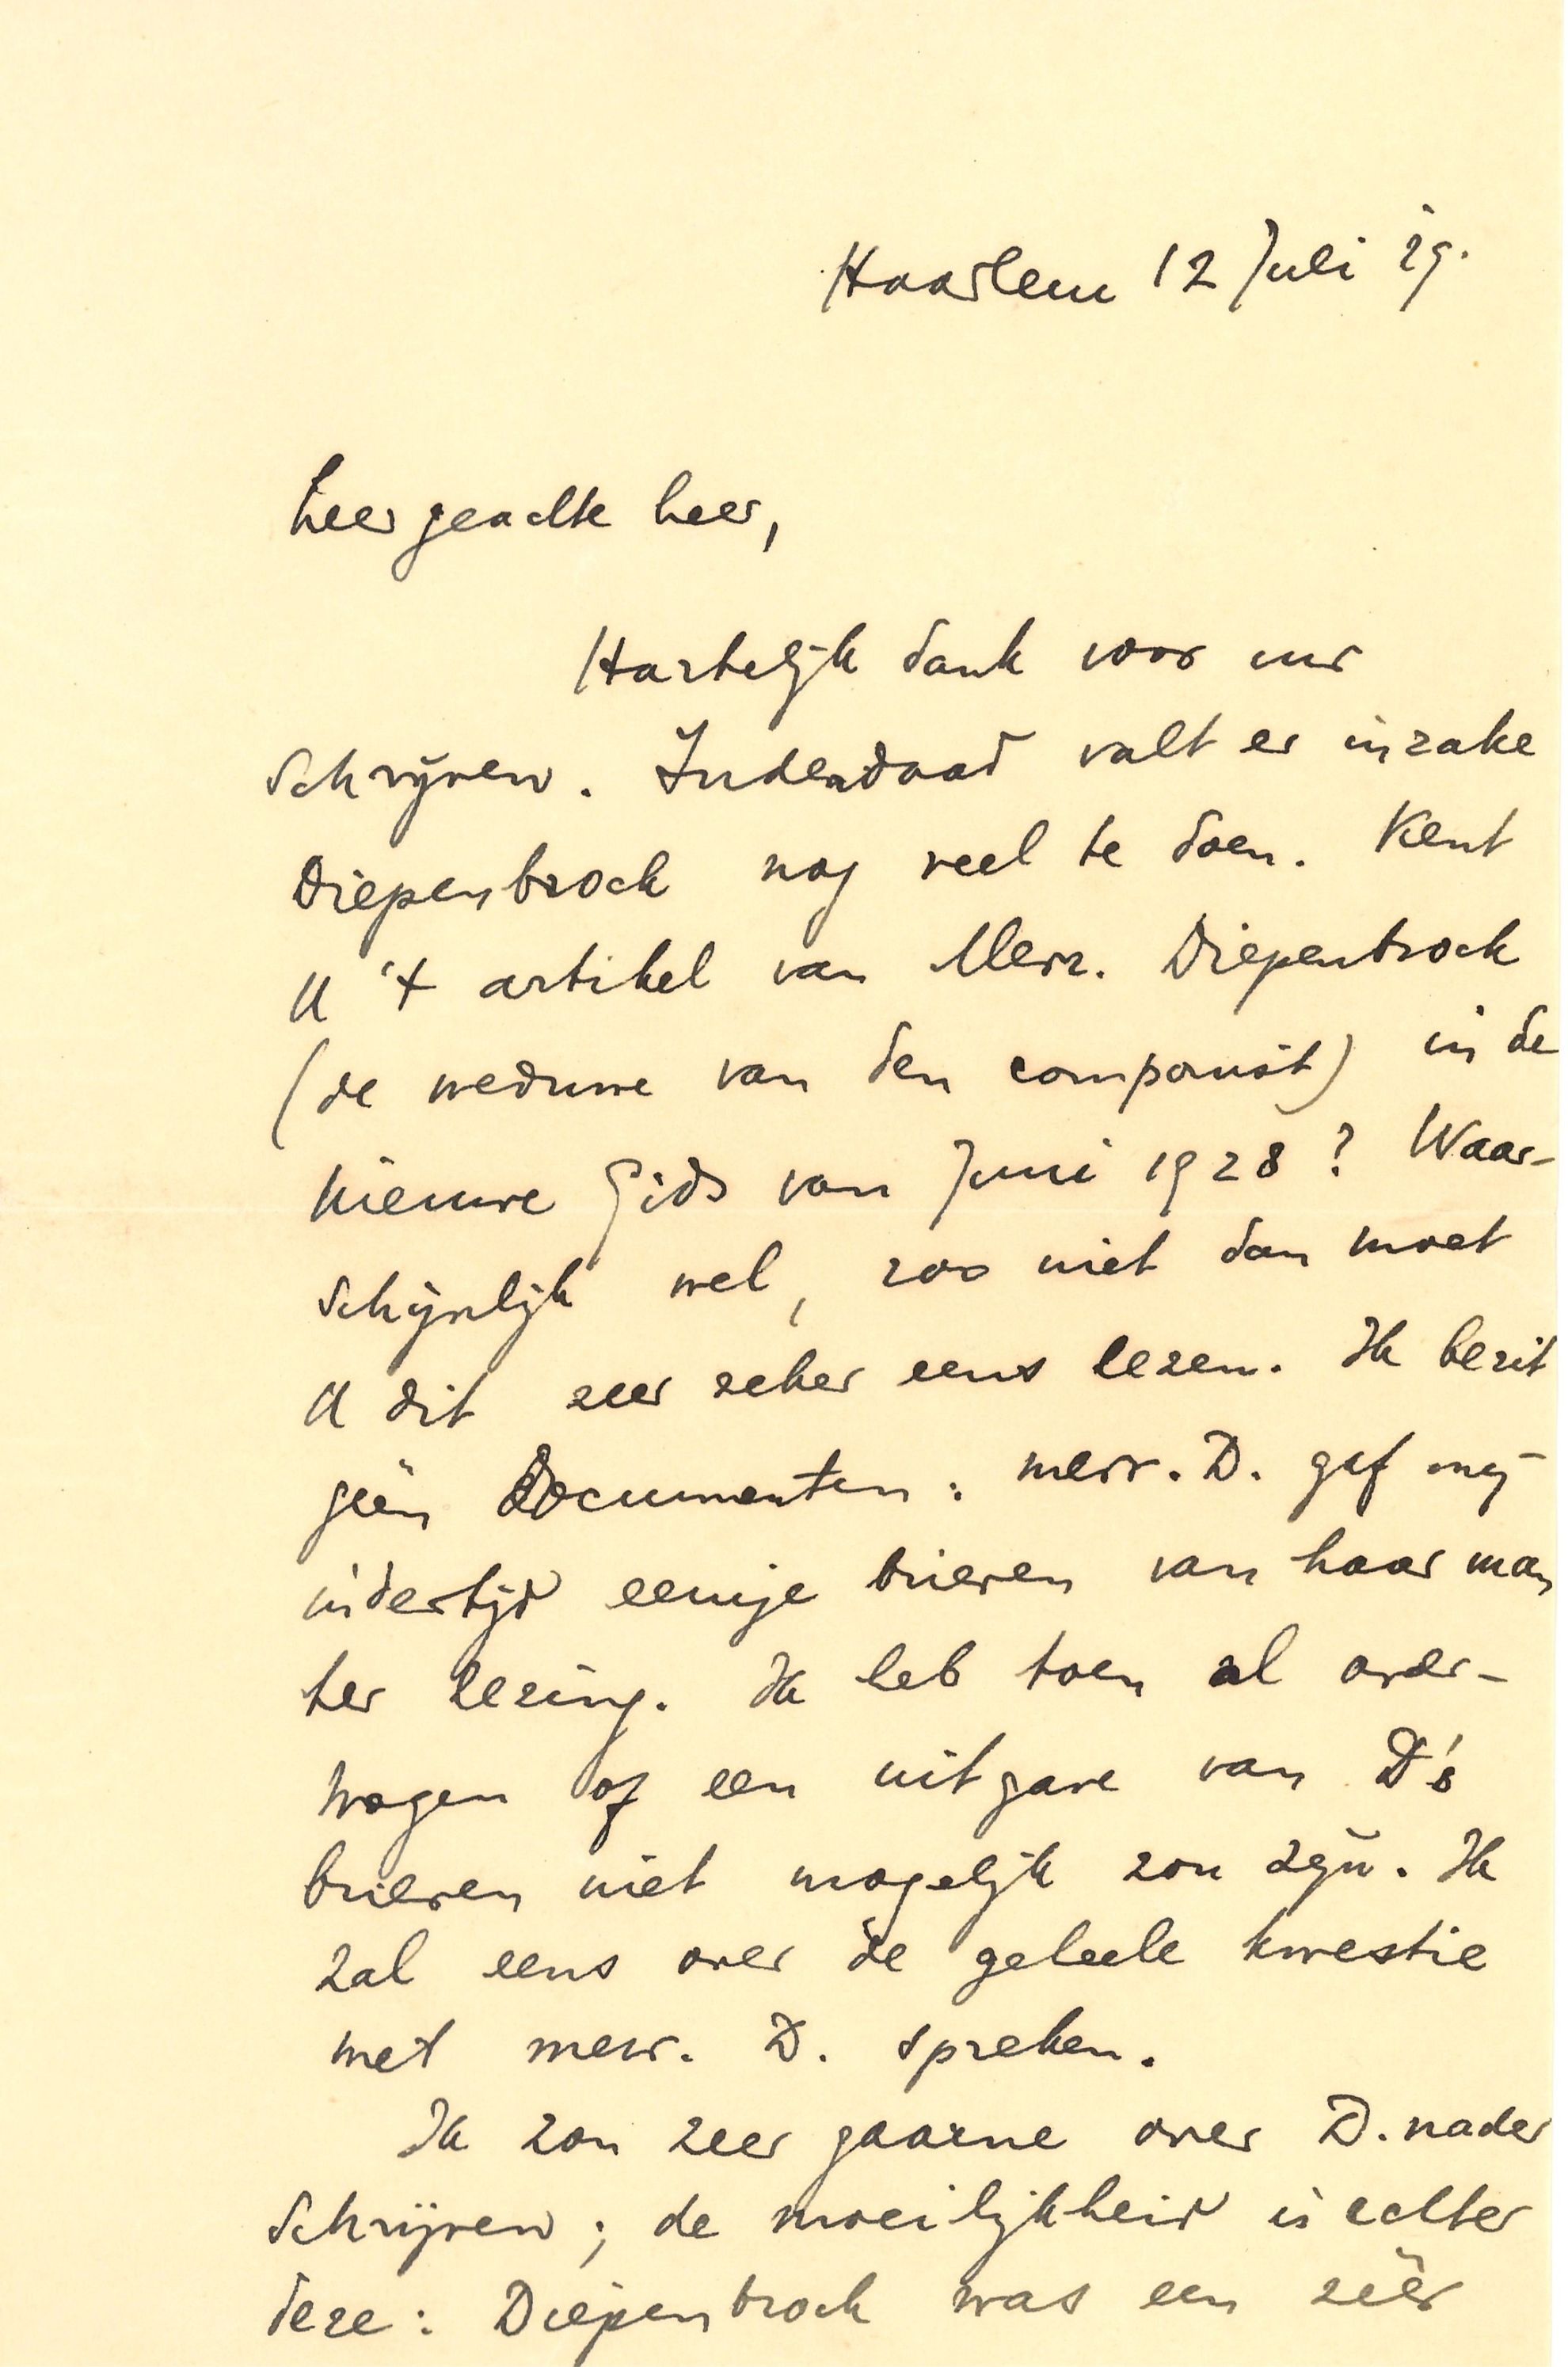 Haarlem 12 Juli 29.
Zeer geachte heer,
Hartelijk dank voor uw
schrijven. Inderdaad valt er inzake
Diepenbrock nog veel te doen. Kent
U 't artikel van Mevr. Diepenbrock
(de weduwe van den componist) in de
Nieuwe Gids van Juni 1928? Waar-
schijnlijk wel, zoo niet dan moet
U dit zeer zeker eens lezen. Ik bezit
géén documenten: mevr. D. gaf mij
indertijd eenige brieven van haar man
ter lezing. Ik heb toen al over-
wogen of een uitgave van D's
brieven niet mogelijk zou zijn. Ik
zal eens over de geheele kwestie
met mevr. D. spreken.
Ik zou zeer gaarne over D. nader
schrijven; de moeilijkheid is echter
deze: Diepenbrock was een zéér